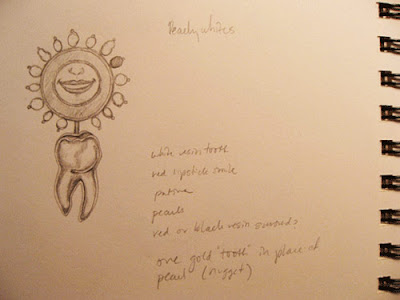 Pearly whites
white resin tooth
red lipstick smile
patina
pearls
red or black resin surround?
one gold "tooth" in place of
pearl (nugget)